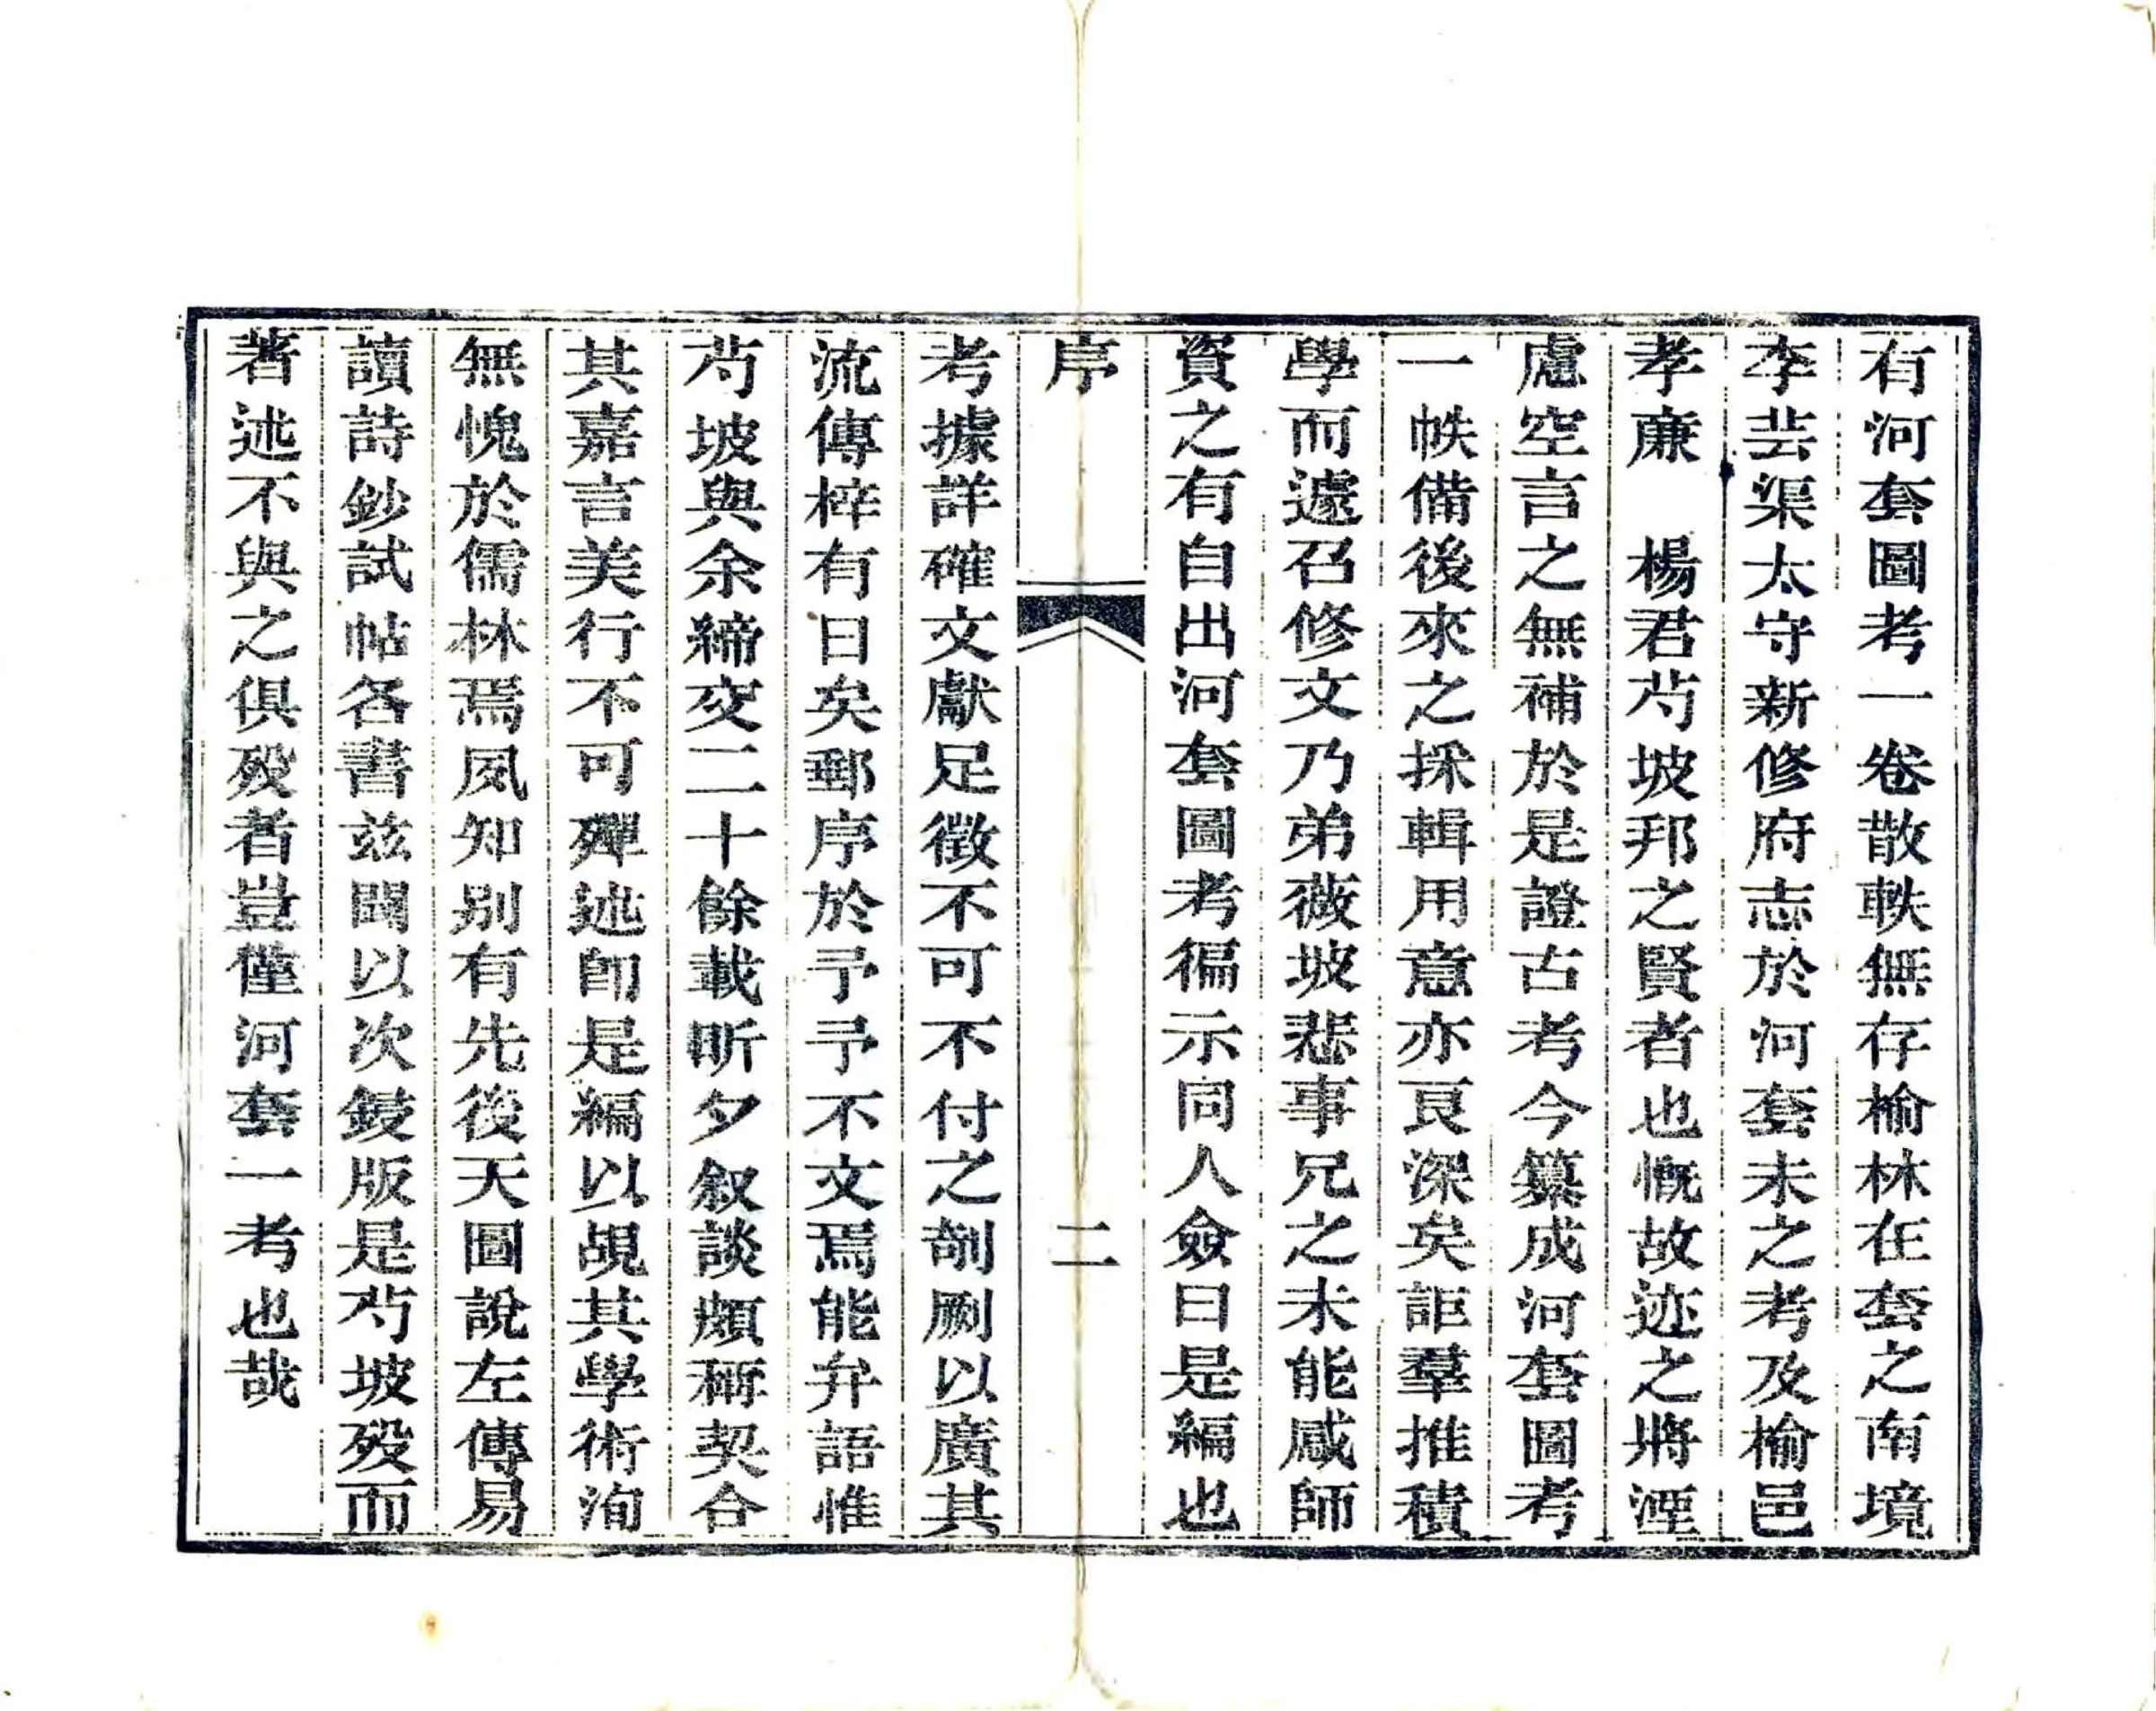 有河套圖考一卷散軼無存榆林在套之南境
李芸渠太守新修府志於河套未之考及榆邑
孝廉　楊君芍坡邦之賢者也慨故迹之將湮
慮空言之無補於是證古考今纂成河套圖考
一帙備後來之採輯用意亦良深矣詎羣推積
學而遽召修文乃弟薇坡悲事兄之未能感師
資之有自出河套圖考徧示同人僉曰是編也
序　二
考據詳確文獻足徵不可不付之剞劂以廣其
流傳梓有日矣郵序於予予不文焉能弁語惟
芍坡與余締交二十餘載昕夕叙談頗稱契合
其嘉言美行不可殫述卽是編以覘其學術洵
無愧於儒林焉夙知別有先後天圖說左傳易
讀詩鈔試帖各書茲聞以次鋟版是芍坡歿而
著述不與之俱歿者豈僅河套一考也哉